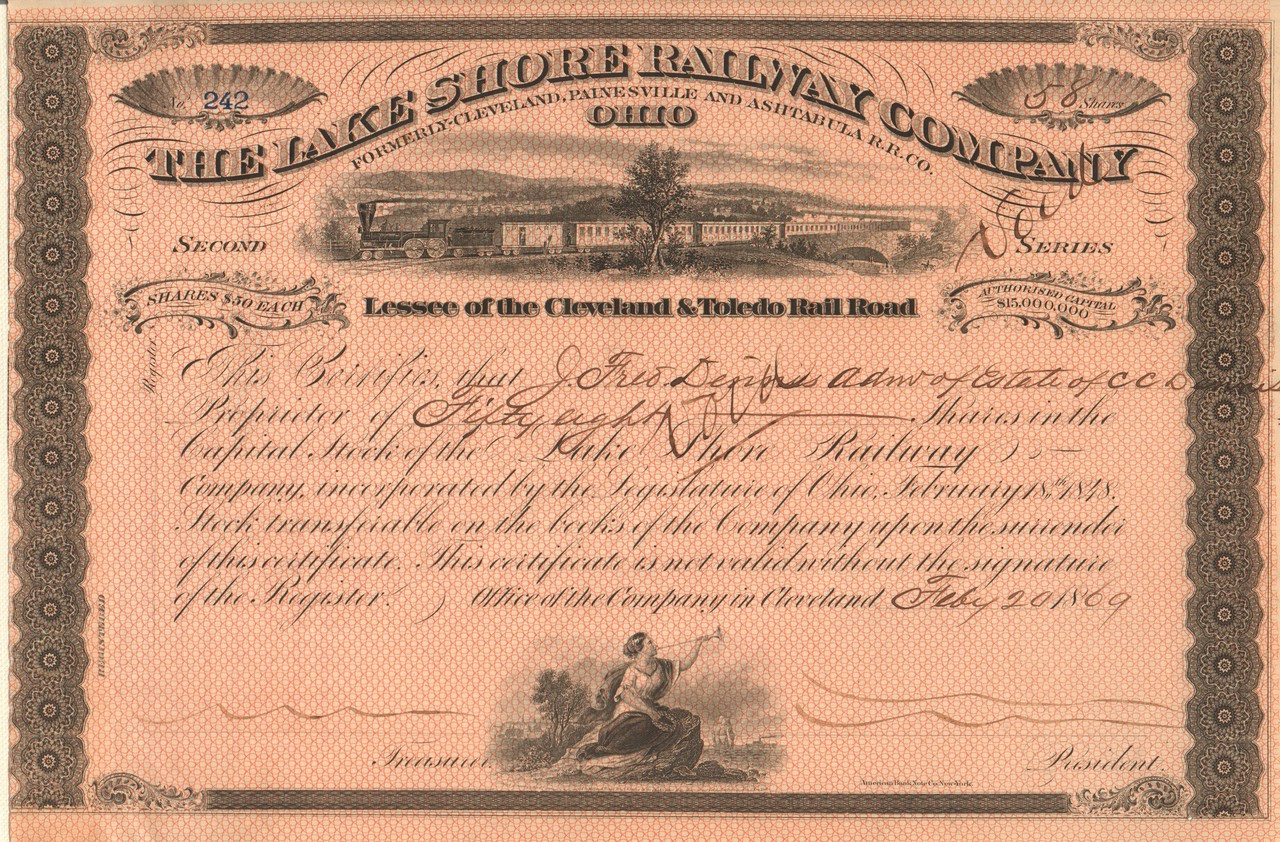 THE LAKE SHORE RAILWAY COMPANY
FORMERLY-CLEVELAND, PAINESVILLE AND ASHTABULA R.R. CO.
OHIO
No. 242
58 Shares
SECOND SERIES
SHARES $50 EACH
AUTHORISED CAPITAL $15,000,000
Lessee of the Cleveland & Toledo Rail Road
This Certifies, that J. Fred. Dennis Admr of Estate of C C Dennis
Proprietor of Fifty eight Shares in the
Capital Stock of the Lake Shore Railway
Company, incorporated by the Legislature of Ohio, February 18th 1848.
Stock transferable on the books of the Company upon the surrender
of this certificate. This certificate is not valid without the signature
of the Register. Office of the Company in Cleveland Feby 20 1869
Register
REGISTERED
Treasurer
President.
American Bank Note Co. New-York.